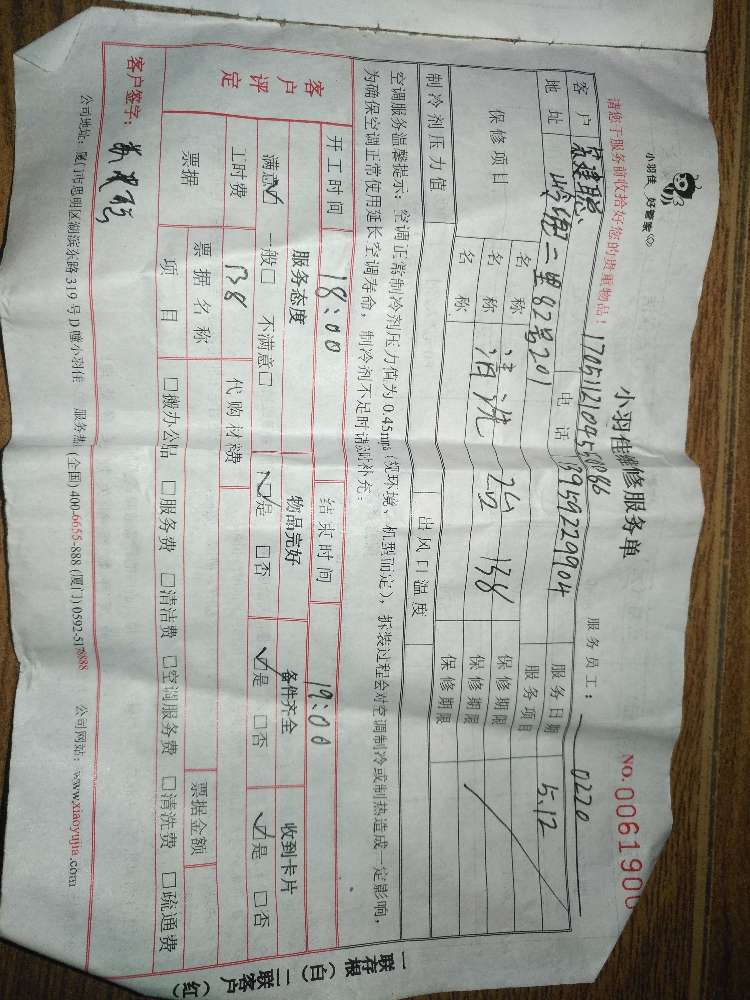 小羽佳 好管家
小羽佳维修服务单
NO.
请您于服务前收拾好您的贵重物品！
服务员工： 0220
客户
电话 13959229904
服务日期 5.12
地址 岭兜二里82号201
服务项目
保修项目
名称
保修期限
名称 清洗 2台 138
保修期限
名称
保修期限
制冷剂压力值
出风口温度
空调服务温馨提示：空调正常制冷剂压力值为0.45mpa（视环境、机型而定），拆装过程会对空调制冷或制热造成一定影响，
为确保空调正常使用延长空调寿命，制冷剂不足时请测补充。
客户评定
开工时间 18:00
结束时间 19:00
服务态度
物品完好
备件齐全
收到卡片
满意☑ 一般□ 不满意□
☑是 □否
☑是 □否
☑是 □否
工时费 138
代购材料费
票据
票据名称
票据金额
项目
□搬办公品 □服务费 □清洁费 □空调服务费 □清洗费 □疏通费
客户签字：
公司地址：厦门市思明区湖滨东路319号D幢小羽佳
(全国) 400-6655-888 (厦门)
公司网站：www.xiaoyujia.com
一联存根（白） 二联客户（红）